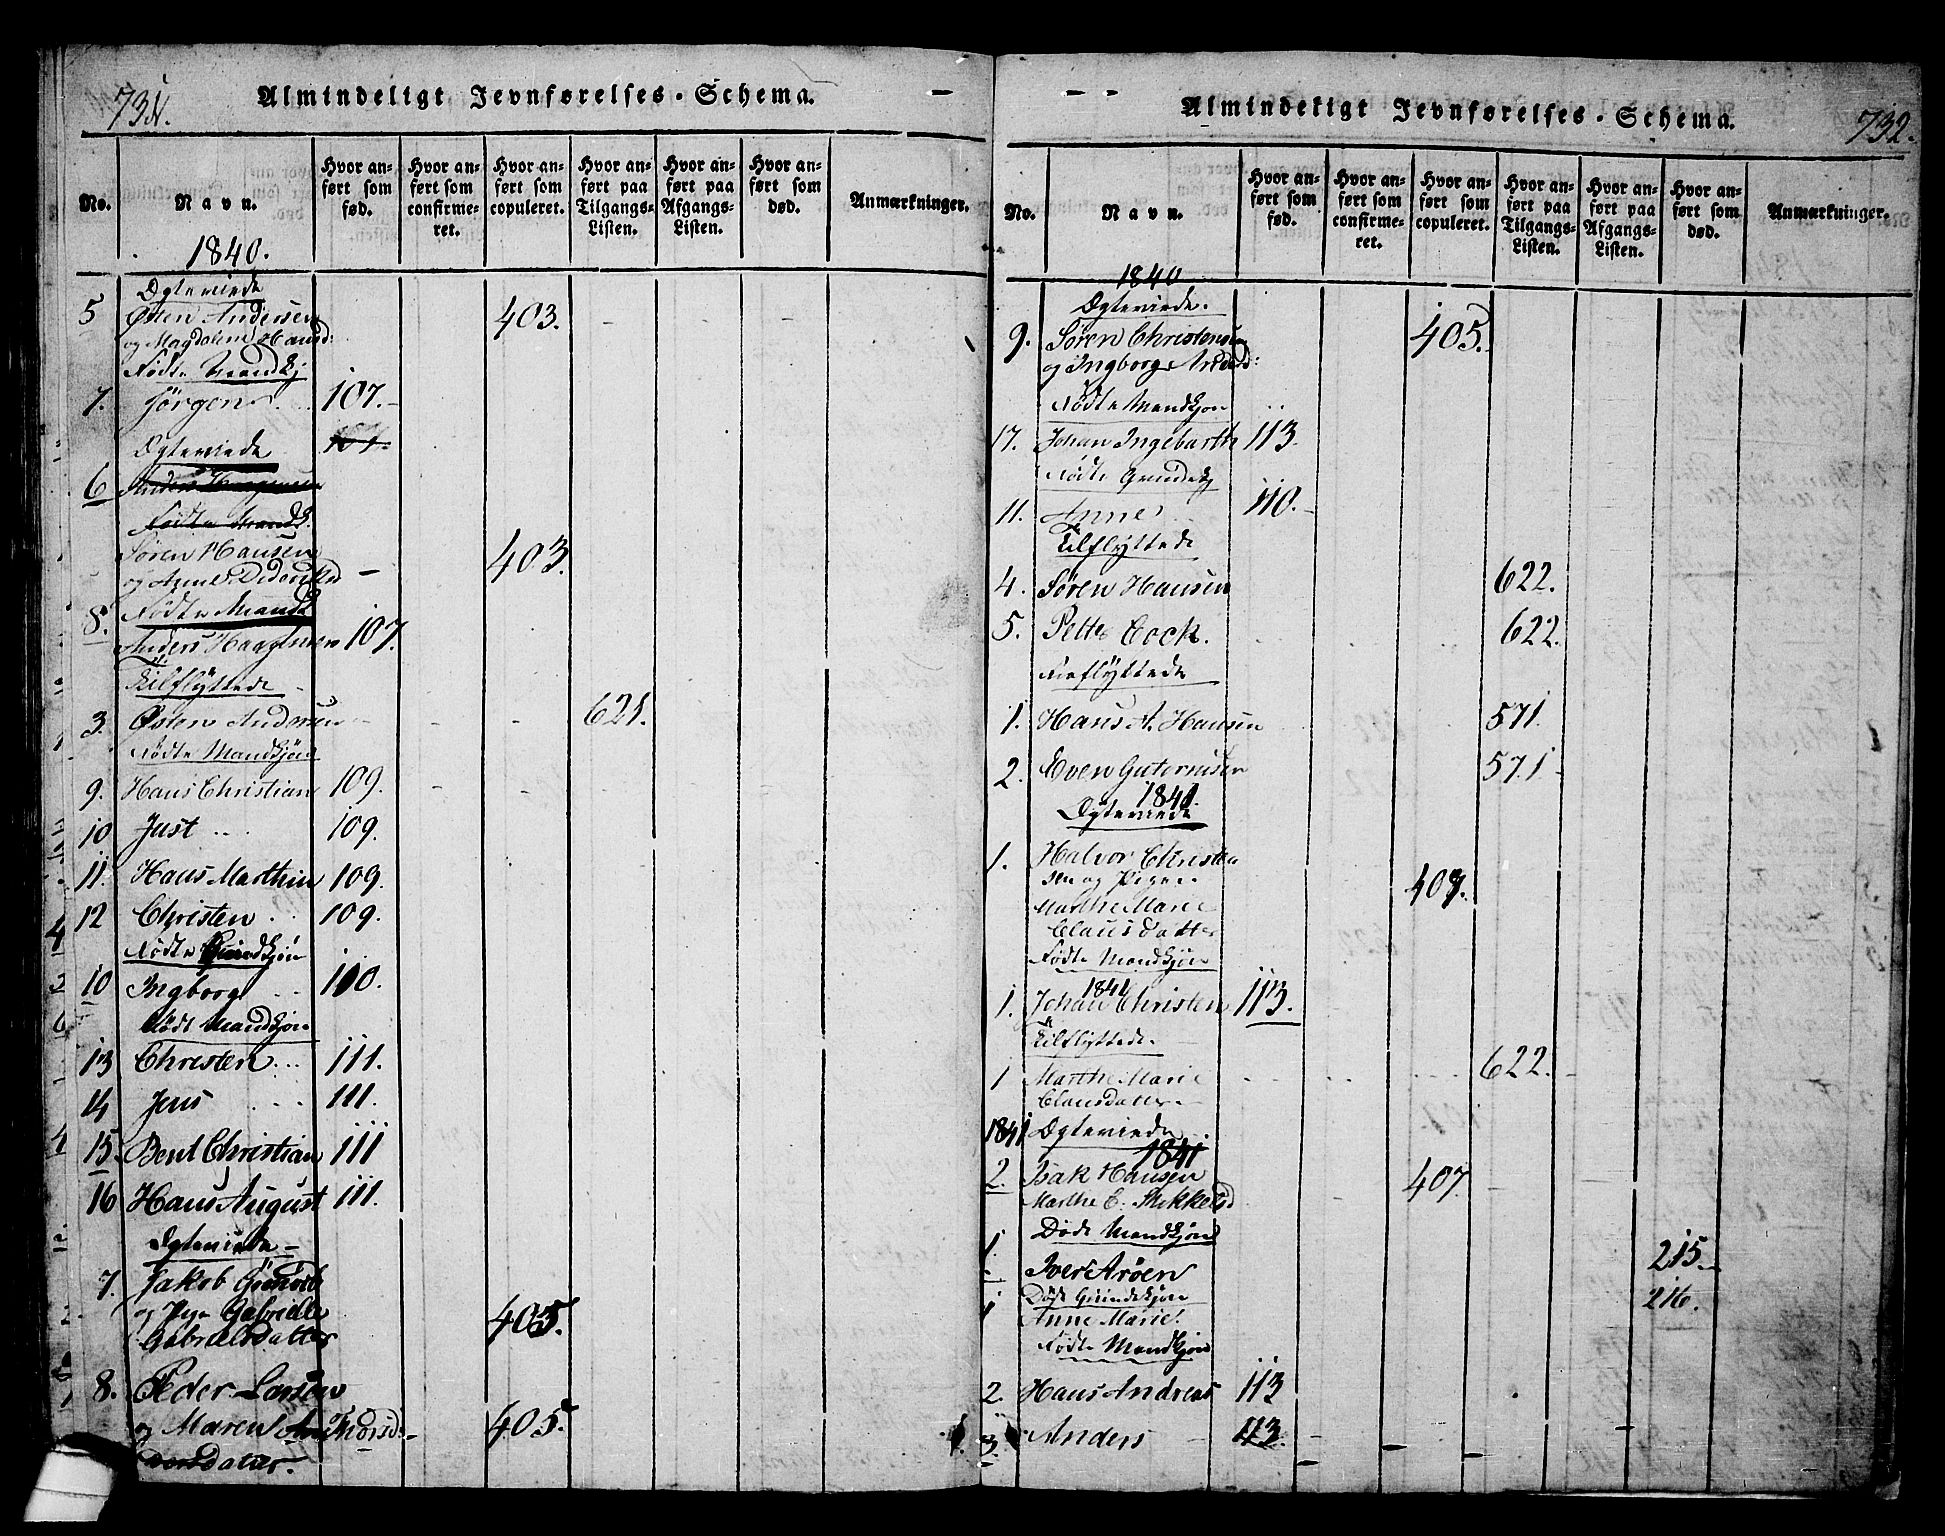 731.
Almindeligt Jevnførelses-Schema.
No.
Navn.
Hvor anført som fød.
Hvor anført som confirmeret.
Hvor anført som copuleret.
Hvor anført paa Tilgangs-Listen.
Hvor anført paa Afgangs-Listen.
Hvor anført som død.
Anmærkninger.
1840.
Ægteviede
5 Østen Andersen 403.
og Magdalene Hansd:
Fødte Mandkj
7. Jörgen 107.
Ægteviede 107.
6 Anders Haagensen
Fødte Mandk.
Søren Hansen 403.
og Anne Dideriksd
Fødte Mandk
8. Anders Haagensen 107.
Tilflÿttede
3. Østen Andersen 621.
Fødte Mandkjøn
9. Hans Christian 109.
10 Just 109.
11. Hans Marthin 109
12 Christen 109.
Fødte Qvindkjøn
10 Ingborg 110.
Født Mandkjøn
13 Christen 111.
14 Jens 111.
15 Bent Christian 111
16 Hans August 111.
Ægteviede
7. Jakob
og Pige Gabrielle 405.
Gabrielsdatter
8. Peder Larsen
og Maren An Thorsd: 405.
datter.
732.
Almindeligt Jevnførelses-Schema.
No.
Navn.
Hvor anført som fød.
Hvor anført som confirmeret.
Hvor anført som copuleret.
Hvor anført paa Tilgangs-Listen.
Hvor anført paa Afgangs-Listen.
Hvor anført som død.
Anmærkninger.
1840
Ægteviede.
9. Søren Christensen 405.
og Ingborg Andersd:
Fødte Mandkjøn
17. Johan Ingebarth 113.
Fødte Qvindekj
11. Anne 110.
Tilflÿttede
4. Søren Hansen 622.
5. Petter Cock. 622.
Fraflÿttede
1. Hans A. Hansen 571.
2. Even Gutormsen 571
1841.
Ægteviede
1. Halvor Christen
sen og Pigen 407.
Marthe Marie
Clausdatter
Fødte Mandkjøn
1841
1. Johan Christen 113.
Tilflyttede.
1 Marthe Marie 622.
Clausdatter
1841 Ægteviede
1841
2. Isak Hansen 407
Marthe E. Mikkelsd
Døde Mandkjøn
1. Iver Arøen 215.
Døde Qvindekjøn
1 Anne Marie. 216.
Fødte Mandkjøn
2. Hans Andreas 113
3. Anders 113.